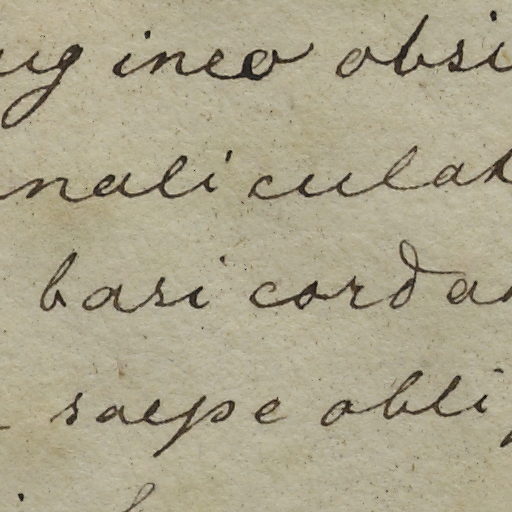 ugineo obsi
naliculat
basi corda
saepe obli